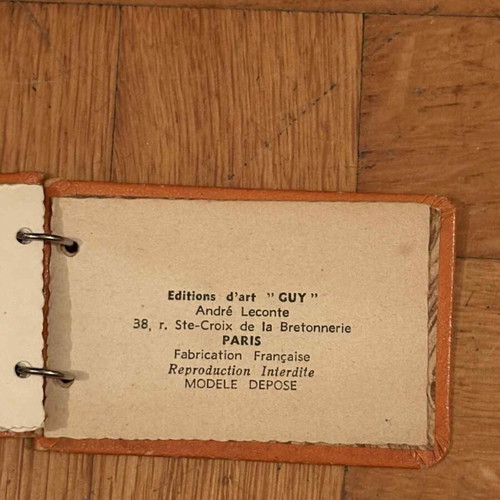 Editions d'art "GUY"
André Leconte
38, r. Ste-Croix de la Bretonnerie
PARIS
Fabrication Française
Reproduction Interdite
MODELE DEPOSE